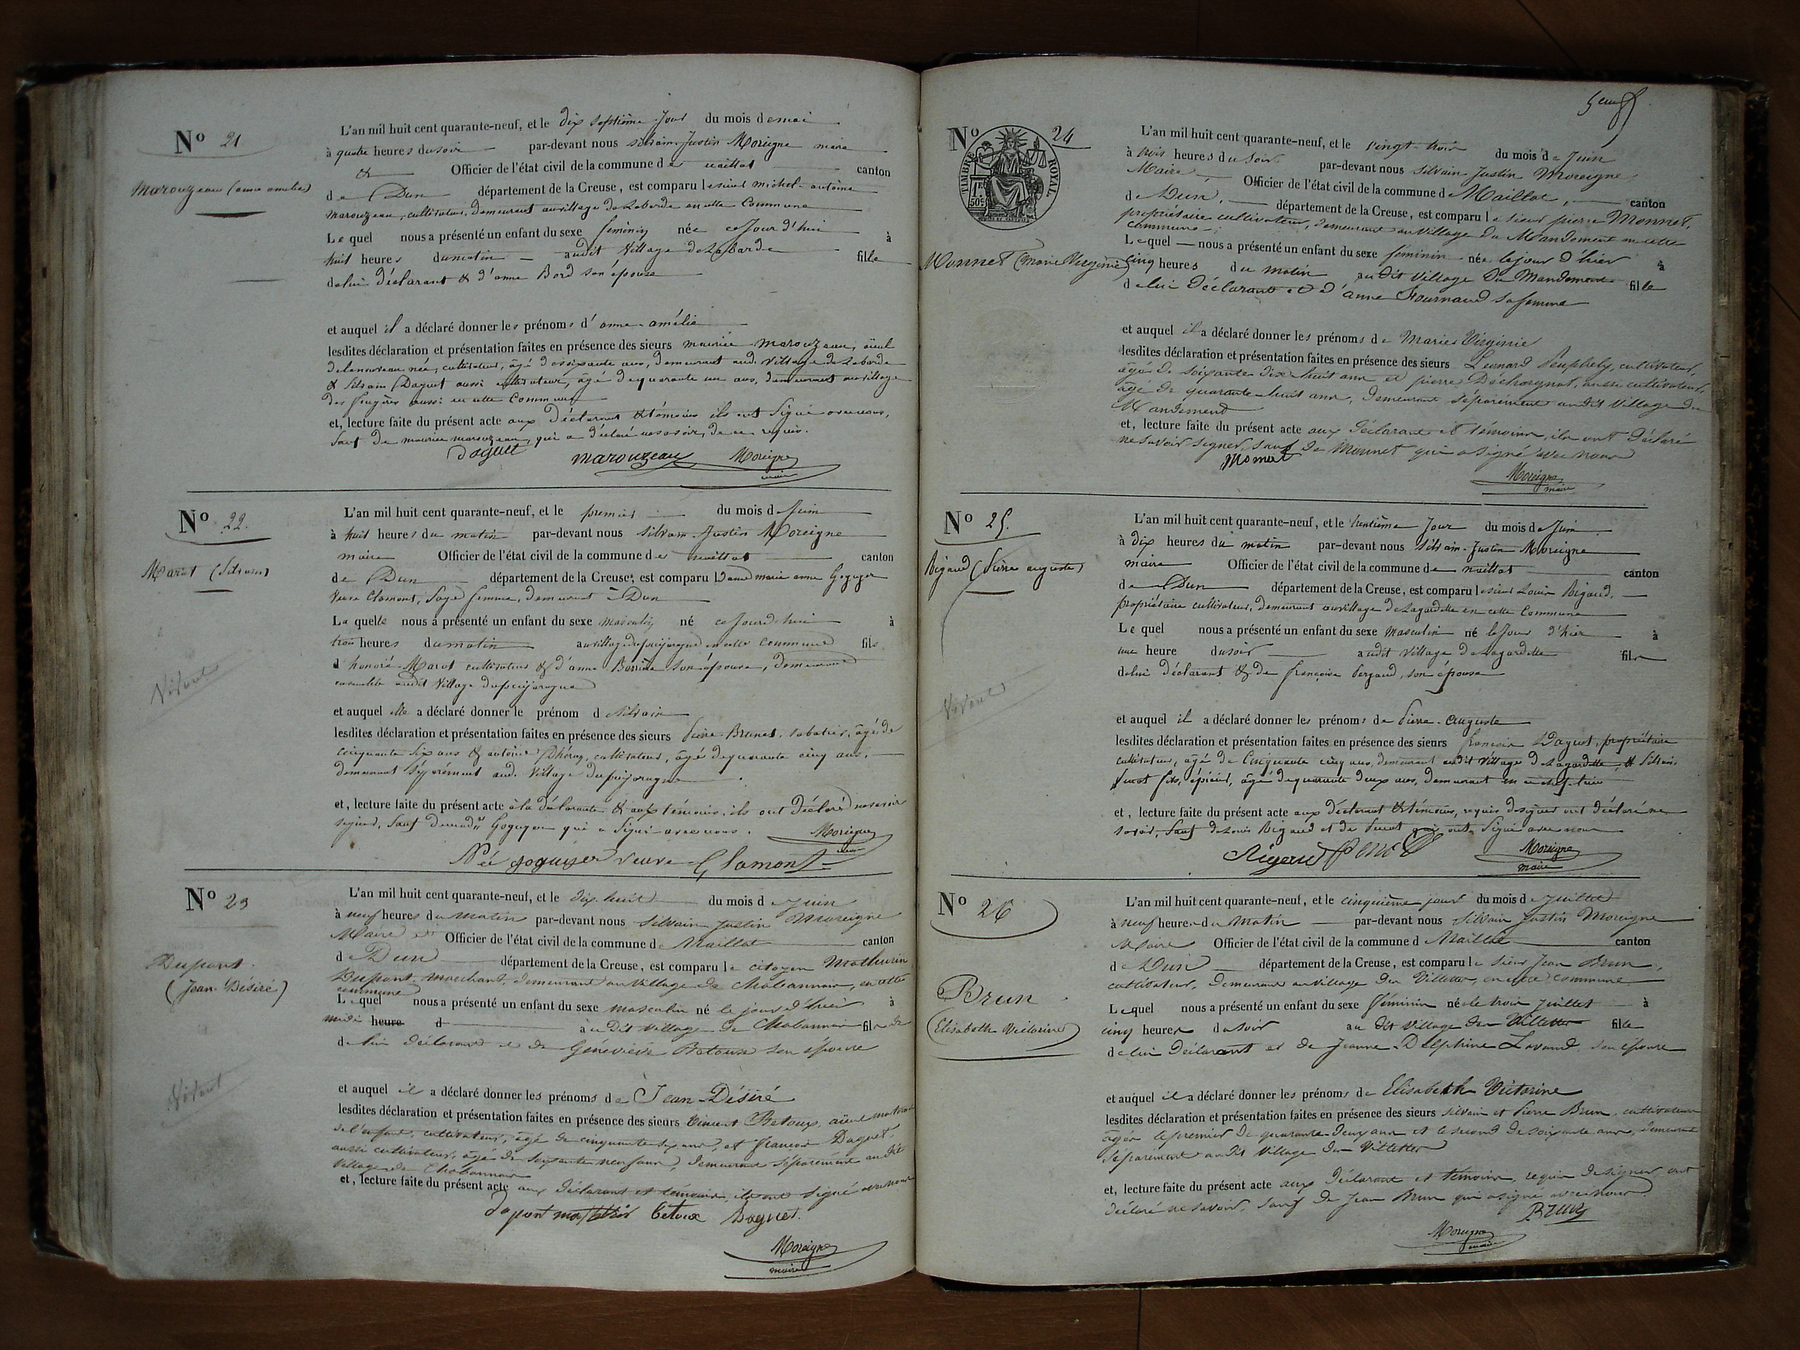 No 21
Marouzeau (anne amélie)
L'an mil huit cent quarante-neuf, et le dix septième Jour du mois de mai
à quatre heures du soir par-devant nous silvain-Justin Moreigne maire
& Officier de l'état civil de la commune de maillat canton
de Dun département de la Creuse, est comparu le sieur michel-antoine
marouzeau, cultivateur, demeurant au village de Laborde en cette Commune
Le quel nous a présenté un enfant du sexe féminin née ce Jour d'hui à
huit heures du matin audit Village de Laborde fille
de lui déclarant & d'anne Bord son épouse
et auquel il a déclaré donner les prénoms d'anne-amélie
lesdites déclaration et présentation faites en présence des sieurs maurice marouzeau, aïeul
de la nouveau née, cultivateur, âgé de soixante ans, demeurant aud. Village de Laborde
& Silvain Daguet aussi cultivateur, âgé de quarante un ans, demeurant au village
des fougères aussi en cette Commune
et, lecture faite du présent acte aux déclarant & témoins ils ont signé avec nous,
sauf de maurice marouzeau qui a déclaré ne savoir, de ce requis.
Daguet marouzeau Moreigne
maire
No 22
Marot (Silvain)
Vivant
L'an mil huit cent quarante-neuf, et le premier du mois de Juin
à huit heures du matin par-devant nous silvain-Justin Moreigne
maire Officier de l'état civil de la commune de maillat canton
de Dun département de la Creuse, est comparu Dame marie anne Goguyer
Veuve Clamont, Sage femme, demeurant à Dun
La quelle nous a présenté un enfant du sexe masculin né ce Jourd'hui à
trois heures du matin au village en cette commune fils
d'honoré Marot cultivateur & d'anne son épouse, demeurant
ensemble audit Village
et auquel elle a déclaré donner le prénom de Silvain
lesdites déclaration et présentation faites en présence des sieurs Pierre Brunet, sabotier, âgé de
cinquante six ans & antoine cultivateur, âgé de quarante cinq ans,
demeurant séparément aud. Village
et, lecture faite du présent acte à la déclarante & aux témoins, ils ont déclaré ne savoir
signer, sauf de mad. Goguyer qui a signé avec nous. Moreigne
maire
Née goguyer veuve Clamont
No 23
Dupont
(Jean-Désiré)
Vivant
L'an mil huit cent quarante-neuf, et le dix huit du mois de Juin
à neuf heures du matin par-devant nous Silvain Justin Moreigne
Maire Officier de l'état civil de la commune de Maillat canton
de Dun département de la Creuse, est comparu le citoyen Mathurin
Dupont, marchand, demeurant au village de Chabannes, en cette
commune
Le quel nous a présenté un enfant du sexe masculin né le jour d'hier à
midi heure d au dit village de Chabannes fils de
de lui déclarant et de Géneviève Betoux son épouse
et auquel il a déclaré donner les prénoms de Jean-Désiré
lesdites déclaration et présentation faites en présence des sieurs Vincent Betoux, aïeul maternel
de l'enfant, cultivateur, âgé de cinquante six ans, et françois Daguet,
aussi cultivateur, âgé de soixante neuf ans, demeurant séparément au dit
Village de Chabannes
et, lecture faite du présent acte aux déclarant et témoins, ils ont signé avec nous
Dupont Betoux Daguet.
Moreigne
maire
5eme ff
No 24
TIMBRE ROYAL
50c
Monnet (Marie Virginie)
L'an mil huit cent quarante-neuf, et le vingt-trois du mois de Juin
à trois heures du soir par-devant nous Silvain Justin Moreigne
Maire Officier de l'état civil de la commune de Maillat, canton
de Dun, département de la Creuse, est comparu le sieur pierre Monnet,
propriétaire cultivateur, demeurant au Village du Mandement en cette
commune
Le quel nous a présenté un enfant du sexe féminin née le jour d'hier à
cinq heures du matin au dit Village du Mandement fille
de lui déclarant et d'anne Fournaud sa femme
et auquel il a déclaré donner les prénoms de Marie Virginie
lesdites déclaration et présentation faites en présence des sieurs Léonard cultivateur,
âgé de soixante dix huit ans et pierre aussi cultivateur,
âgé de quarante huit ans, demeurant séparément au dit Village du
Mandement
et, lecture faite du présent acte aux déclarant et témoins, ils ont déclaré
ne savoir signer, sauf de Monnet qui a signé avec nous
Monnet
Moreigne
maire
No 25.
Rigaud (Pierre auguste)
Vivant
L'an mil huit cent quarante-neuf, et le trentième Jour du mois de Juin
à dix heures du matin par-devant nous Silvain-Justin Moreigne
maire Officier de l'état civil de la commune de maillat canton
de Dun département de la Creuse, est comparu le sieur Louis Rigaud,
propriétaire cultivateur, demeurant au village de Lagardette en cette Commune
Le quel nous a présenté un enfant du sexe Masculin né le Jour d'hier à
une heure du soir audit Village de Lagardette fils
de lui déclarant & de françoise Bergaud, son épouse
et auquel il a déclaré donner les prénoms de Pierre-Auguste
lesdites déclaration et présentation faites en présence des sieurs françois Daguet, propriétaire
cultivateur, âgé de Cinquante cinq ans, demeurant audit Village de Lagardette, & Silvain
fils, épicier, âgé de quarante deux ans, demeurant en ce chef-lieu
et, lecture faite du présent acte aux déclarant & témoins, requis de signer ont déclaré ne
savoir, sauf de Louis Rigaud et de qui ont signé avec nous
Rigaud Moreigne
maire
No 26
Brun
(Elisabeth Victorine)
L'an mil huit cent quarante-neuf, et le cinquième jour du mois de Juillet
à neuf heures du Matin par-devant nous Silvain Justin Moreigne
Maire Officier de l'état civil de la commune de Maillat canton
de Dun département de la Creuse, est comparu le sieur Jean Brun,
cultivateur, demeurant au village des Villettes, en cette commune
Le quel nous a présenté un enfant du sexe féminin née le trois Juillet à
cinq heures du soir au dit Village des Villettes fille
de lui déclarant et de Jeanne Delphine Lavaud, son épouse
et auquel il a déclaré donner les prénoms de Elisabeth Victorine
lesdites déclaration et présentation faites en présence des sieurs silvain et Pierre Brun, cultivateurs
âgés le premier de quarante-deux ans et le second de soixante ans, demeurant
séparément au dit Village des Villettes
et, lecture faite du présent acte aux déclarant et témoins, requis de signer ont
déclaré ne savoir, sauf de Jean Brun qui a signé avec nous
BRUN
Moreigne
maire